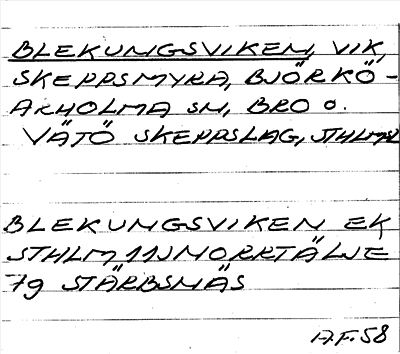 BLEKUNGSVIKEN, VIK,
SKEPPSMYRA, BJÖRKÖ-
ARHOLMA SN, BRO O.
VÄTÖ SKEPPSLAG, STHLMSL
BLEKUNGSVIKEN EK
STHLM 11J NORRTÄLJE
79 STÄRBSNÄS
A.F. 58